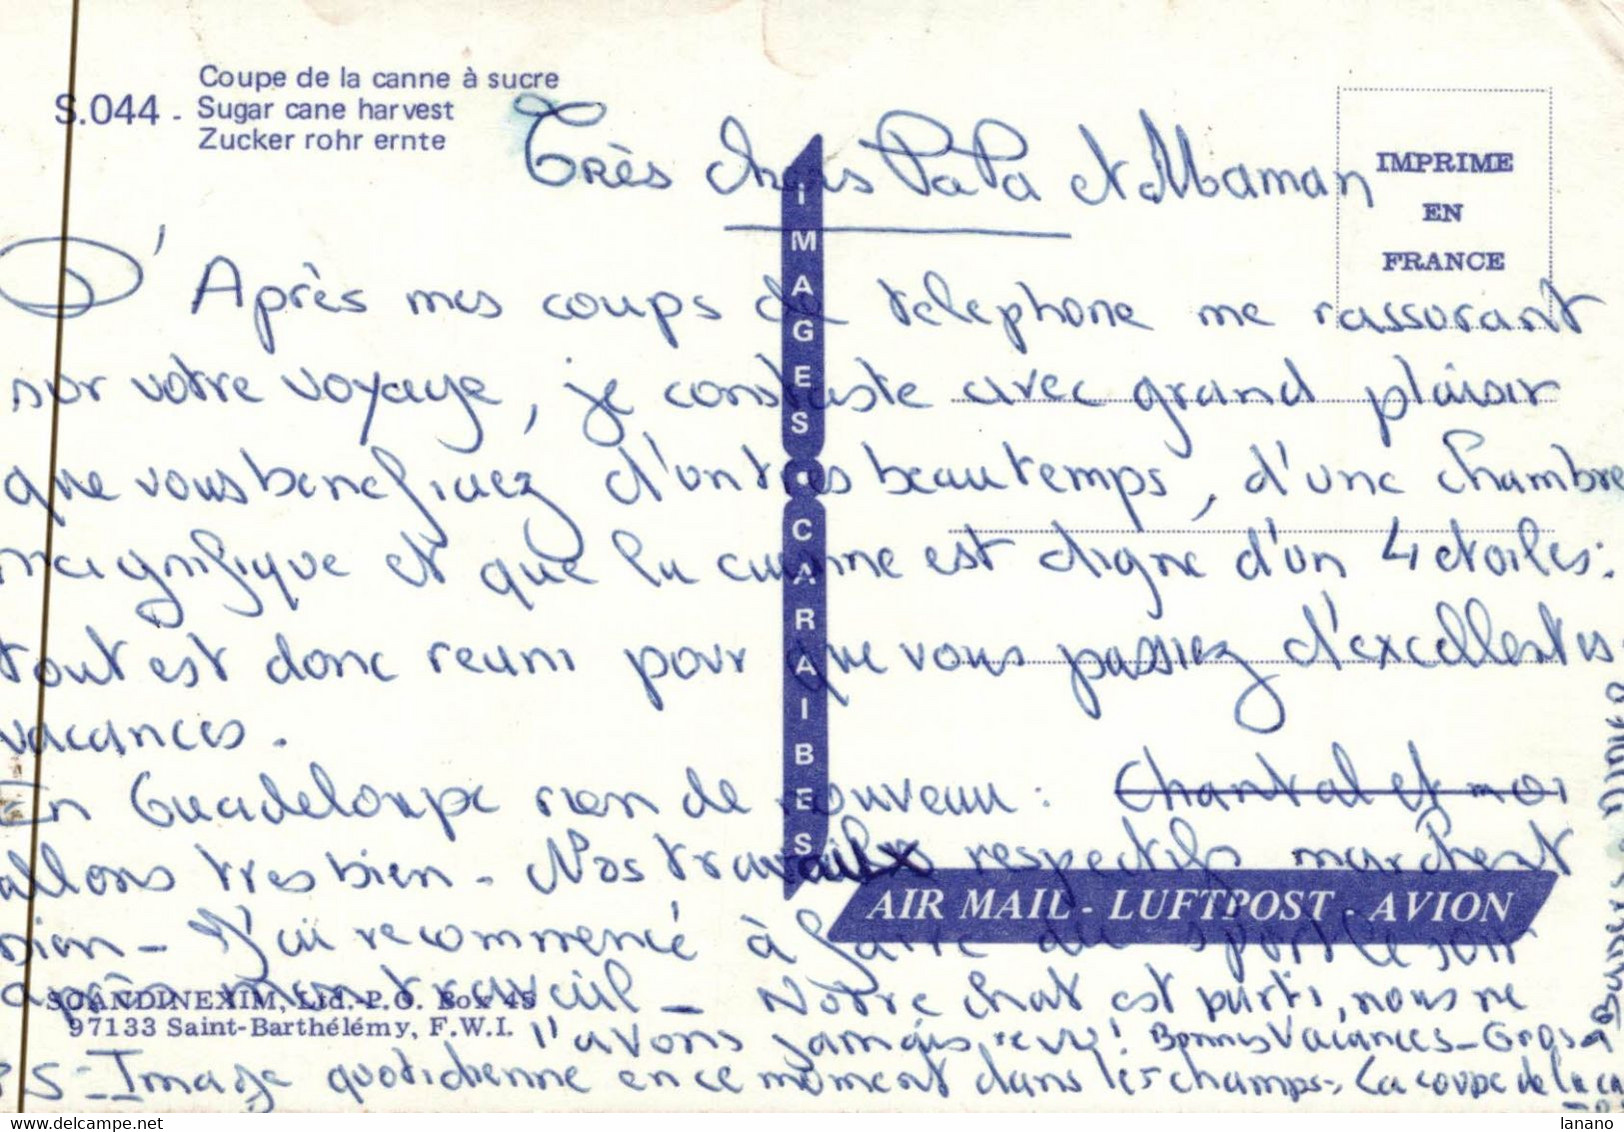 Coupe de la canne à sucre
S.044 - Sugar cane harvest
Zucker rohr ernte
Très chers PaPa et Maman
IMPRIME
EN
FRANCE
IMAGES CARAIBES
Après mes coups de telephone me rassurant
sur votre voyage, je constate avec grand plaisir
que vous beneficiez d'un très beau temps, d'une chambre
magnifique et que la cuisine est digne d'un 4 etoiles:
tout est donc reuni pour que vous passiez d'excellentes
vacances.
En Guadeloupe rien de nouveau: Chantal et moi
allons tres bien - Nos travaux respectifs marchent
bien - J'ai recommencé à faire du sport le soir
AIR MAIL - LUFTPOST - AVION
après mon travail - Notre chat est parti, nous ne
SCANDINEXIM, Ltd.-P.O. Box 45
97133 Saint-Barthélémy, F.W.I.
l'avons jamais revu! Bonnes Vacances - Gros
PS - Image quotidienne en ce moment dans les champs - La coupe de la
lanano
www.delcampe.net